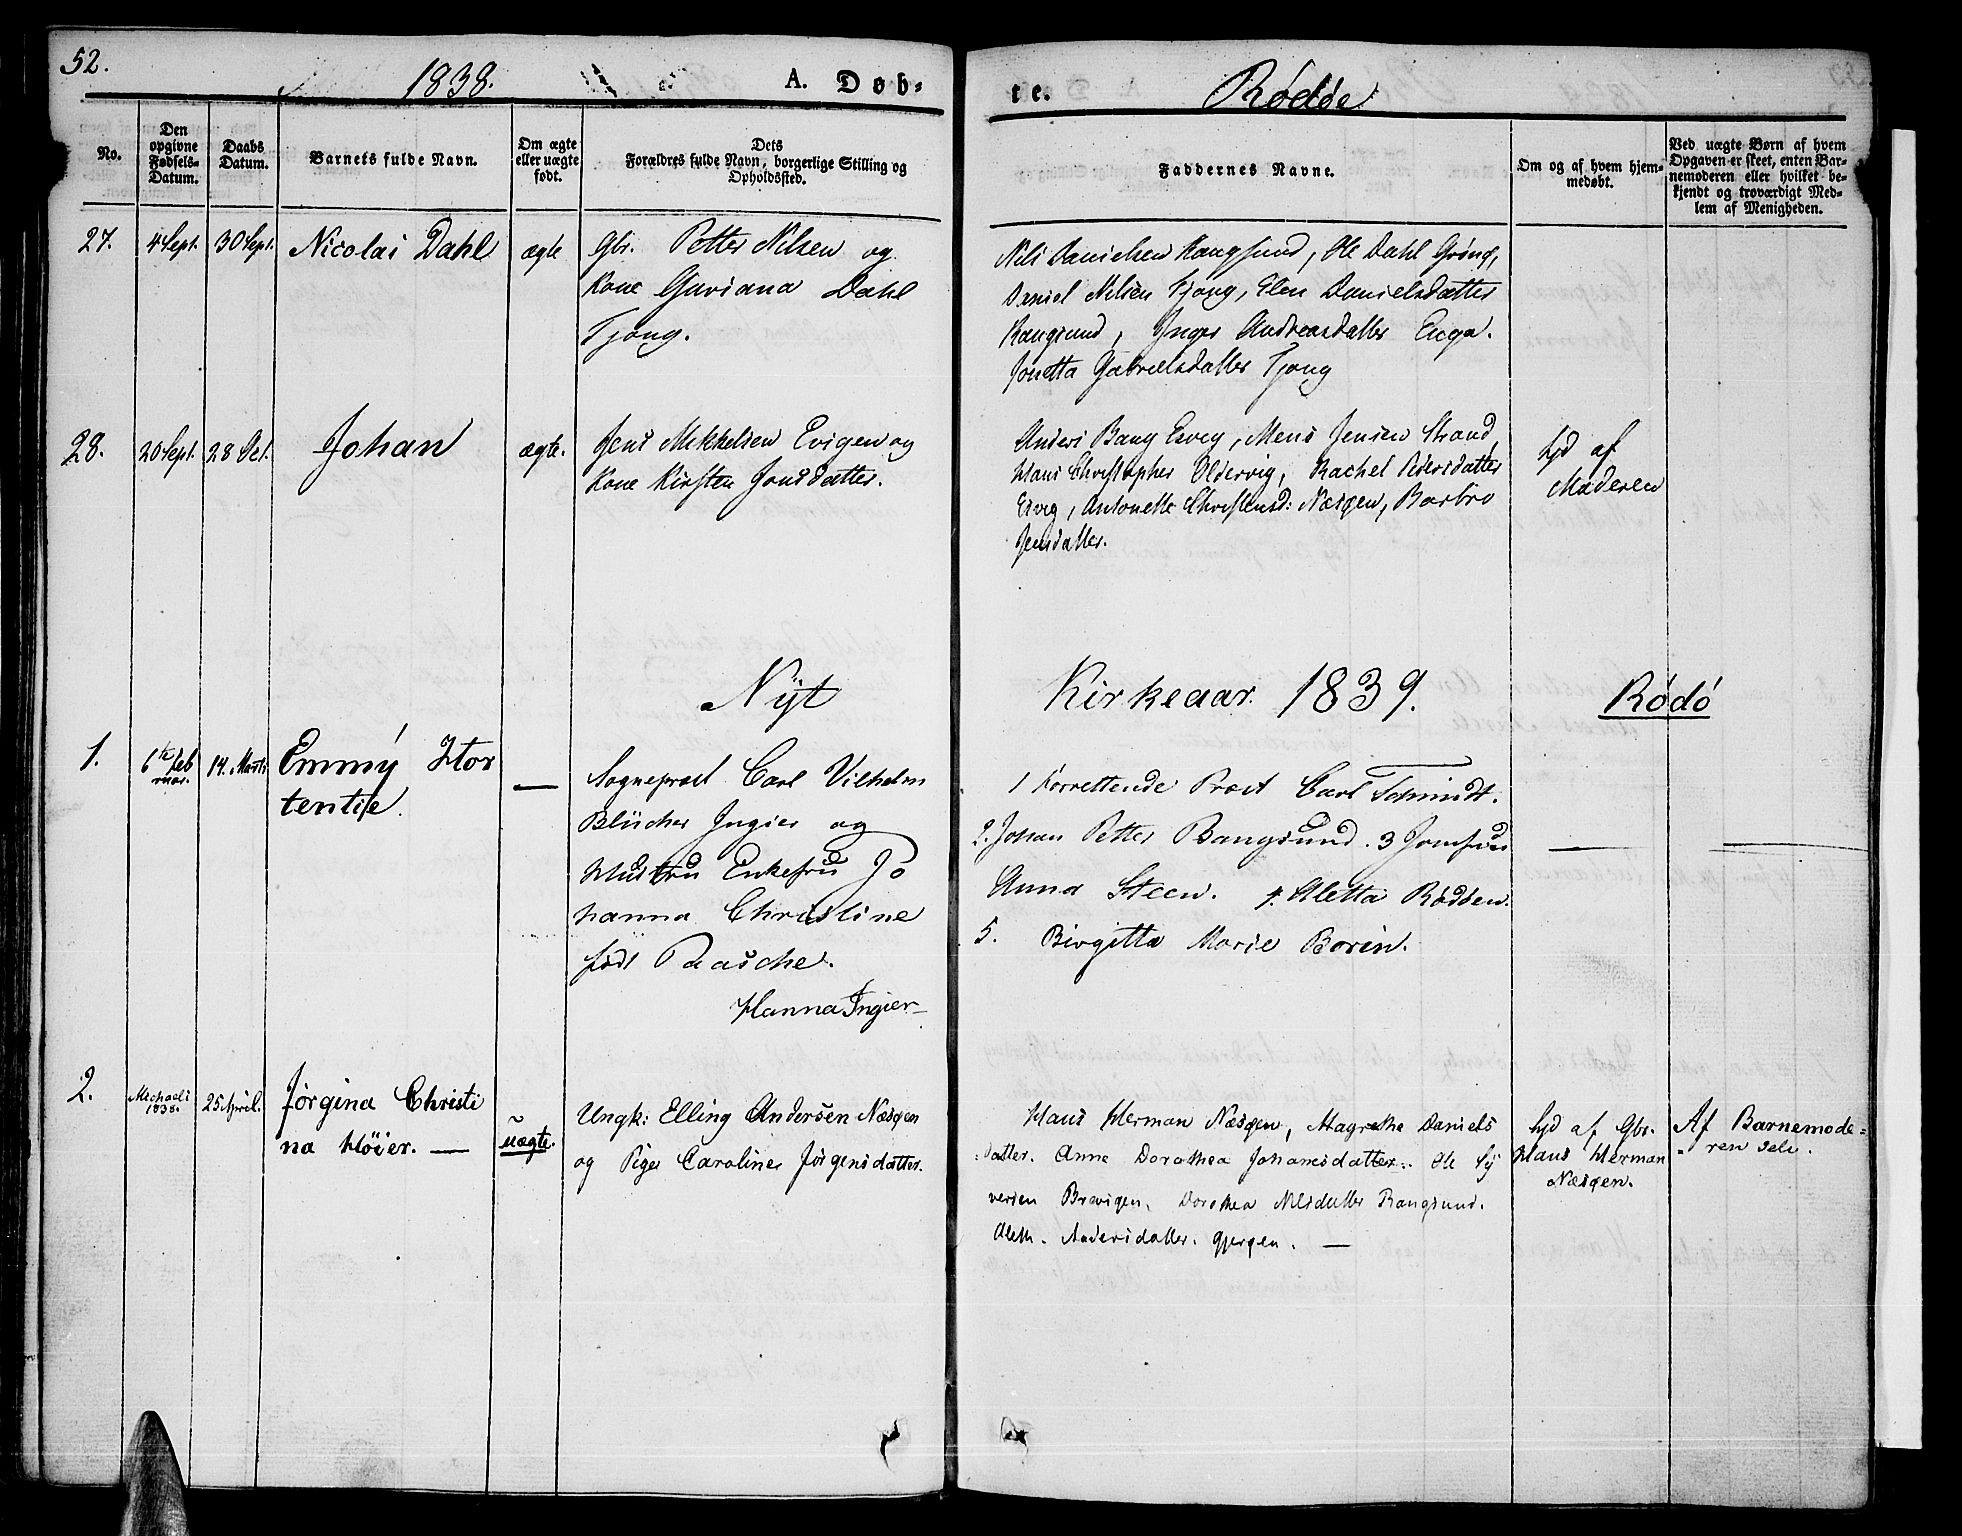 52.
1838.
A. Døb-
te.
Rødøe
No.
Den
opgivne
Fødsels-
Datum.
Daabs
Datum.
Barnets fulde Navn.
Om ægte
eller uægte
født.
Dets
Forældres fulde Navn, borgerlige Stilling og
Opholdssted.
Faddernes Navne.
Om og af hvem hjem-
medøbt.
Ved uægte Børn af hvem
Opgaven er skeet, enten Bar-
nemoderen eller hvilket be-
kjendt og troværdigt Med-
lem af Menigheden.
27.
4 Sept.
30 Sept.
Nicolai Dahl
ægte
Gbr. Petter Nilsen og
Kone Guriana Dahl
Tjong.
Nils Danielsen Rangsund, Ole Dahl Grönö,
Daniel Nilsen Tjong, Elen Danielsdatter
Rangsund, Inger Andreasdatter Enga.
Jonetta Gabrielsdatter Tjong
28.
20 Sept.
28 Oct.
Johan
ægte.
Jens Mikkelsen Evigen og
Kone Kirsten Jonsdatter.
Anders Bang Esvig, Mens Jensen Strand,
Hans Christopher Oldervig, Rachel Pedersdatter
Esvig, Antonette Christensd: Næsgen, Barbro
Jensdatter.
hjd af
Moderen
Nyt
Kirkeaar. 1839.
Rødö
1.
6te Feb
ruar.
14. Marti
Emmy Hor
tentise.
—
Sogneprest Carl Vilhelm
Blücher Ingier og
Hustru Enkefru Jo
hanna Christine
født Raasche.
Hanna Ingier
1 Forrettende Præst Carl Schmidt.
2. Johan Petter Bangsund. 3 Jomfru
Anna Steen. 4. Aletta Rödöen.
5. Birgitta Marie Borin.
2.
Michaeli
1838.
25 April.
Jørgina Christi
na Høier. —
uægte.
Ungk: Elling Andersen Næsgen
og Pige Caroline Jørgensdatter.
Hans Herman Næsgen, Magrethe Daniels
datter. Anne Dorothea Johanesdatter. Ole Sy
versen Brevigen, Dorothea Nilsdatter Rangsund.
Aleth. Andersdatter. Gjersgen. —
hjd af Gbr.
Hans Herman
Næsgen.
Af Barnemode=
ren selv.